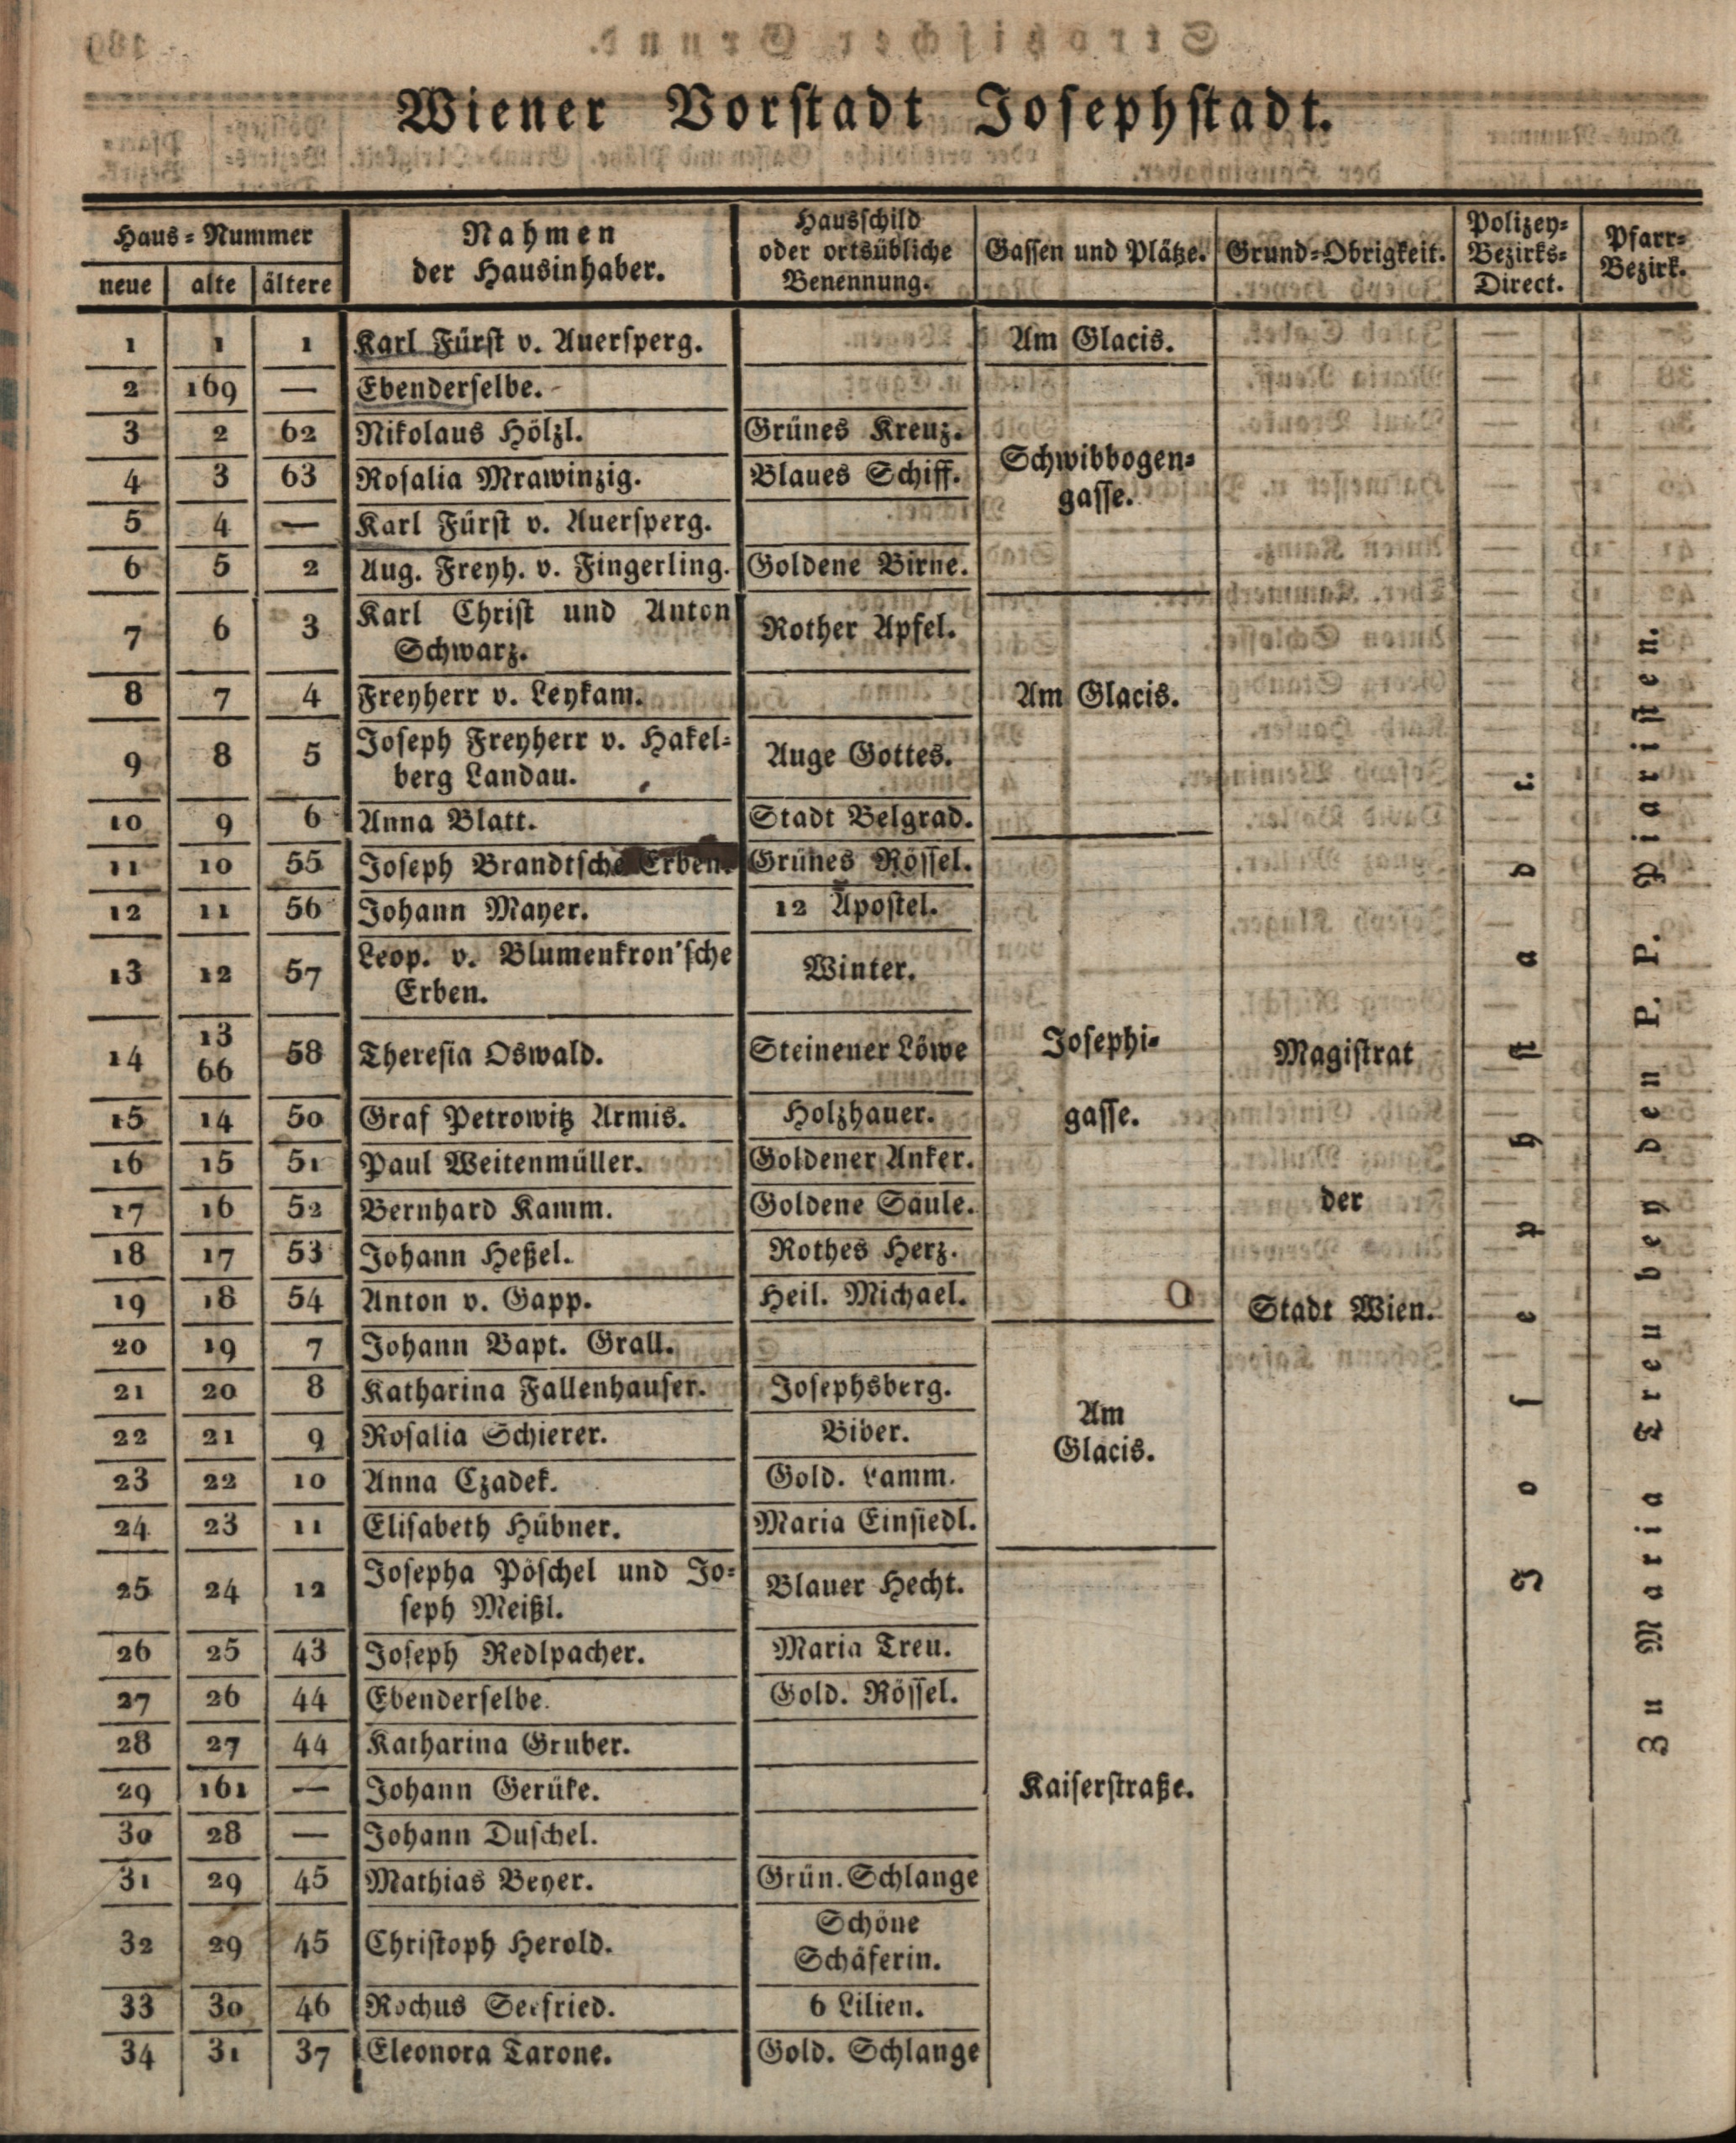 Wiener Vorstadt Josephstadt.
Haus-Nummer
neue alte ältere
Nahmen
der Hausinhaber.
Hausschild
oder ortsübliche
Benennung.
Gassen und Plätze.
Grund-Obrigkeit.
Polizey-
Bezirks-
Direct.
Pfarr-
Bezirk.
1 1 1 Karl Fürst v. Auersperg. Am Glacis.
2 169 — Ebenderselbe.
3 2 62 Nikolaus Hölzl. Grünes Kreuz.
4 3 63 Rosalia Mrawinzig. Blaues Schiff.
Schwibbogen-
gasse.
5 4 — Karl Fürst v. Auersperg.
6 5 2 Aug. Freyh. v. Fingerling. Goldene Birne.
7 6 3 Karl Christ und Anton
Schwarz.
Rother Apfel.
8 7 4 Freyherr v. Leykam. Am Glacis.
9 8 5 Joseph Freyherr v. Hakel-
berg Landau.
Auge Gottes.
10 9 6 Anna Blatt. Stadt Belgrad.
11 10 55 Joseph Brandtsche Erben. Grünes Rössel.
12 11 56 Johann Mayer. 12 Apostel.
13 12 57 Leop. v. Blumenkron'sche
Erben.
Winter.
14 13
66
58 Theresia Oswald. Steinener Löwe
Josephi-
gasse.
Magistrat
der
Stadt Wien.
15 14 50 Graf Petrowitz Armis. Holzhauer.
16 15 51 Paul Weitenmüller. Goldener Anker.
17 16 52 Bernhard Kamm. Goldene Säule.
18 17 53 Johann Heßel. Rothes Herz.
19 18 54 Anton v. Gapp. Heil. Michael.
20 19 7 Johann Bapt. Grall.
21 20 8 Katharina Fallenhauser. Josephsberg.
Am
Glacis.
22 21 9 Rosalia Schierer. Biber.
23 22 10 Anna Czadek. Gold. Lamm.
24 23 11 Elisabeth Hübner. Maria Einsiedl.
25 24 12 Josepha Pöschel und Jo-
seph Meißl.
Blauer Hecht.
26 25 43 Joseph Redlpacher. Maria Treu.
27 26 44 Ebenderselbe. Gold. Rössel.
28 27 44 Katharina Gruber.
29 161 — Johann Gerüke. Kaiserstraße.
30 28 — Johann Duschel.
31 29 45 Mathias Beyer. Grün. Schlange
32 29 45 Christoph Herold. Schöne
Schäferin.
33 30 46 Rochus Seefried. 6 Lilien.
34 31 37 Eleonora Tarone. Gold. Schlange
Josephstadt.
Zu Maria Treu bey den P. P. Piaristen.